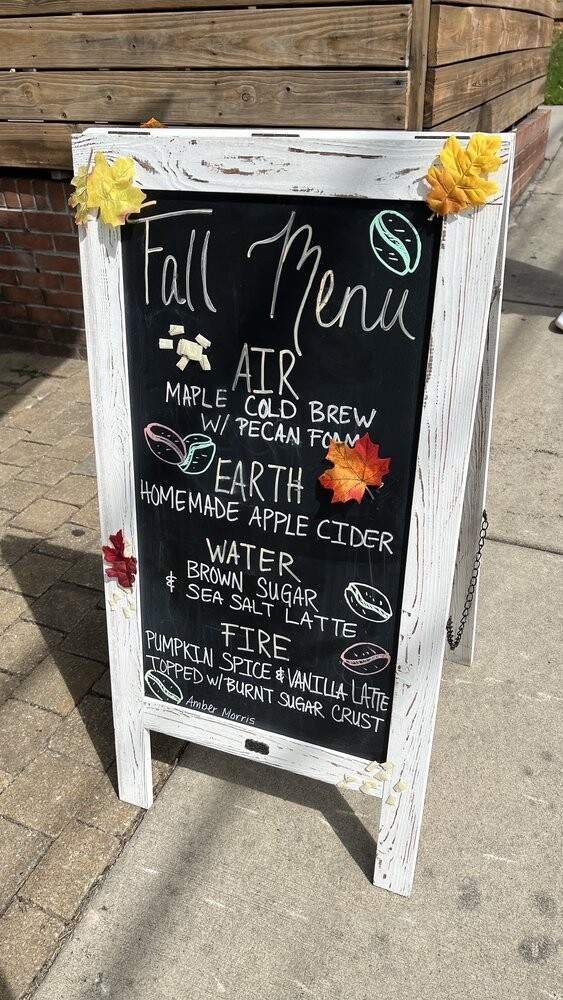 Fall Menu
AIR
MAPLE COLD BREW
W/ PECAN FOAM
EARTH
HOMEMADE APPLE CIDER
WATER
BROWN SUGAR
& SEA SALT LATTE
FIRE
PUMPKIN SPICE & VANILLA LATTE
TOPPED W/ BURNT SUGAR CRUST
Amber Morris